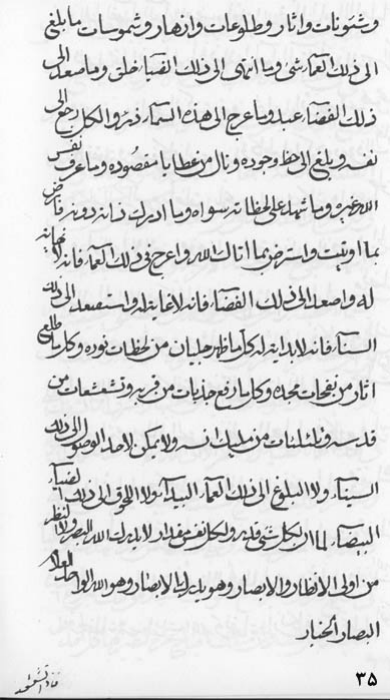 وشئونات واثار وطلوعات وانهار وشموسات ما بلغ
الى ذلك العماء شئ وما انتهى الى ذلك الضياء خلق وما صعد الى
ذلك الفضاء عبد وما عرج الى هذه السماء ذر والكل رجع الى
نفسه وبلغ الى حظ وجوده ونال من عطايا مقصوده وما عرف نفس
الله غيره وما شهد على لحظاته سواه وما ادرك ذاته دونه فارض
بما اوتيت واسترض بما اتاك الله واعرج في ذلك العماء فانه لا نهاية
له واصعد الى ذلك الفضاء فانه لا غاية له واستصعد الى ذلك
السناء فانه لا بداية له كلما ظهر جليان من لحظات نوره وكلما طلع
اثار من نفحات مجده وكلما رفع جذبات من قربه وتشعشعات من
قدسه وتلئلئات من مليك انسه ولا يمكن لاحد الوصول الى ذلك
السيناء ولا البلوغ الى ذلك العماء البيداء ولا اللحوق الى ذلك الفضاء
البيضاء لما ان لكل شئ قدر ولكل نفس مقدار لا يدرك الله البصر ولا النظر
من اولى الانظار والابصار وهو يدرك الابصار وهو الله الواحد العلام
البصار الخبار
٣٥